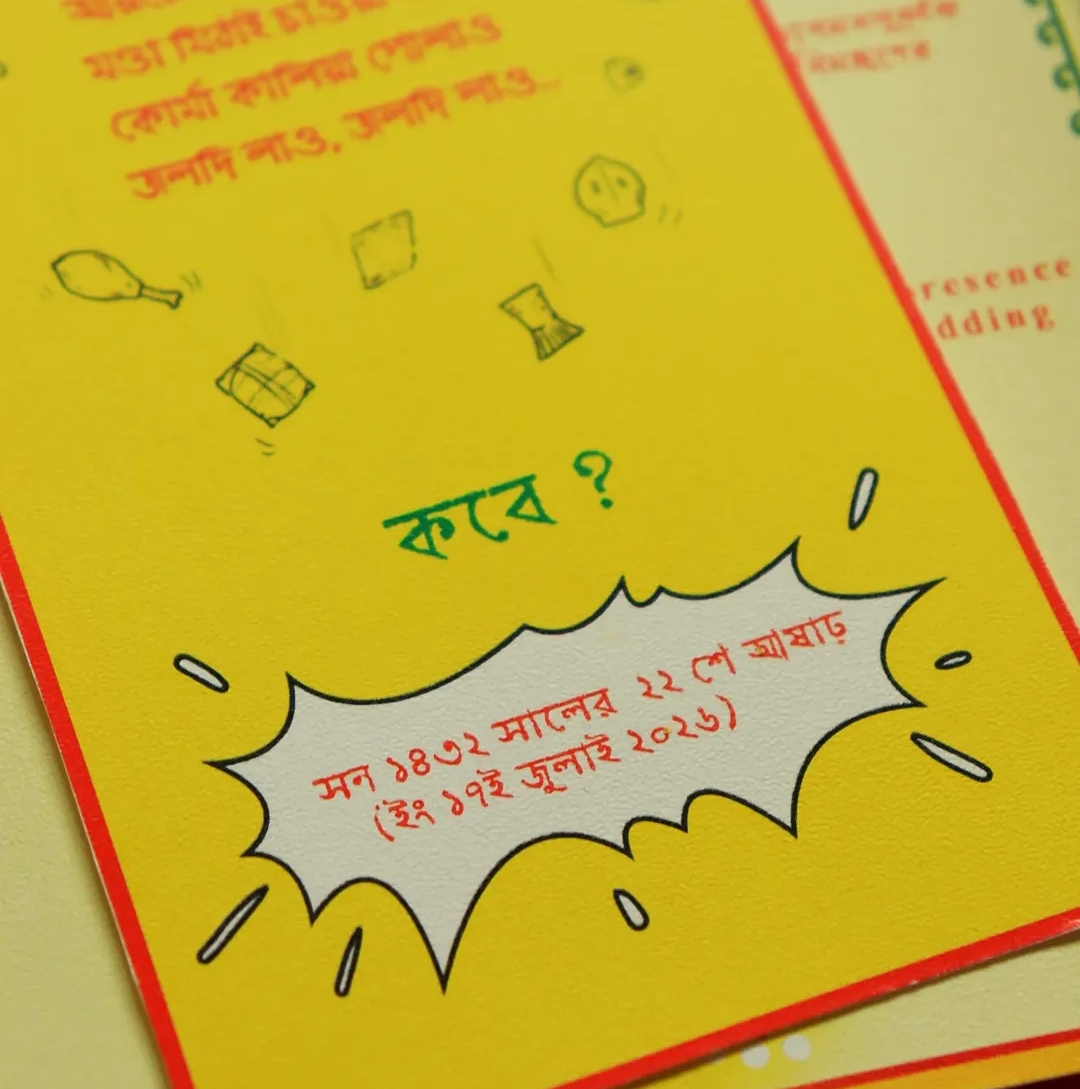 মণ্ডা মিঠাই চাওয়া
কোর্মা কালিয়া পোলাও
জলদি লাও, জলদি লাও...
কবে ?
সন ১৪৩২ সালের ২২ শে আষাঢ়
(ইং ১৭ই জুলাই ২০২৬)
resence
dding